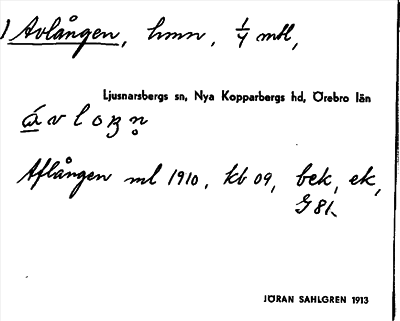 1 Avlången, hmn, 1/4 mtl,
Ljusnarsbergs sn, Nya Kopparbergs hd, Örebro län
Aflången ml 1910, kb 09, bek, ek,
G 81.
JÖRAN SAHLGREN 1913